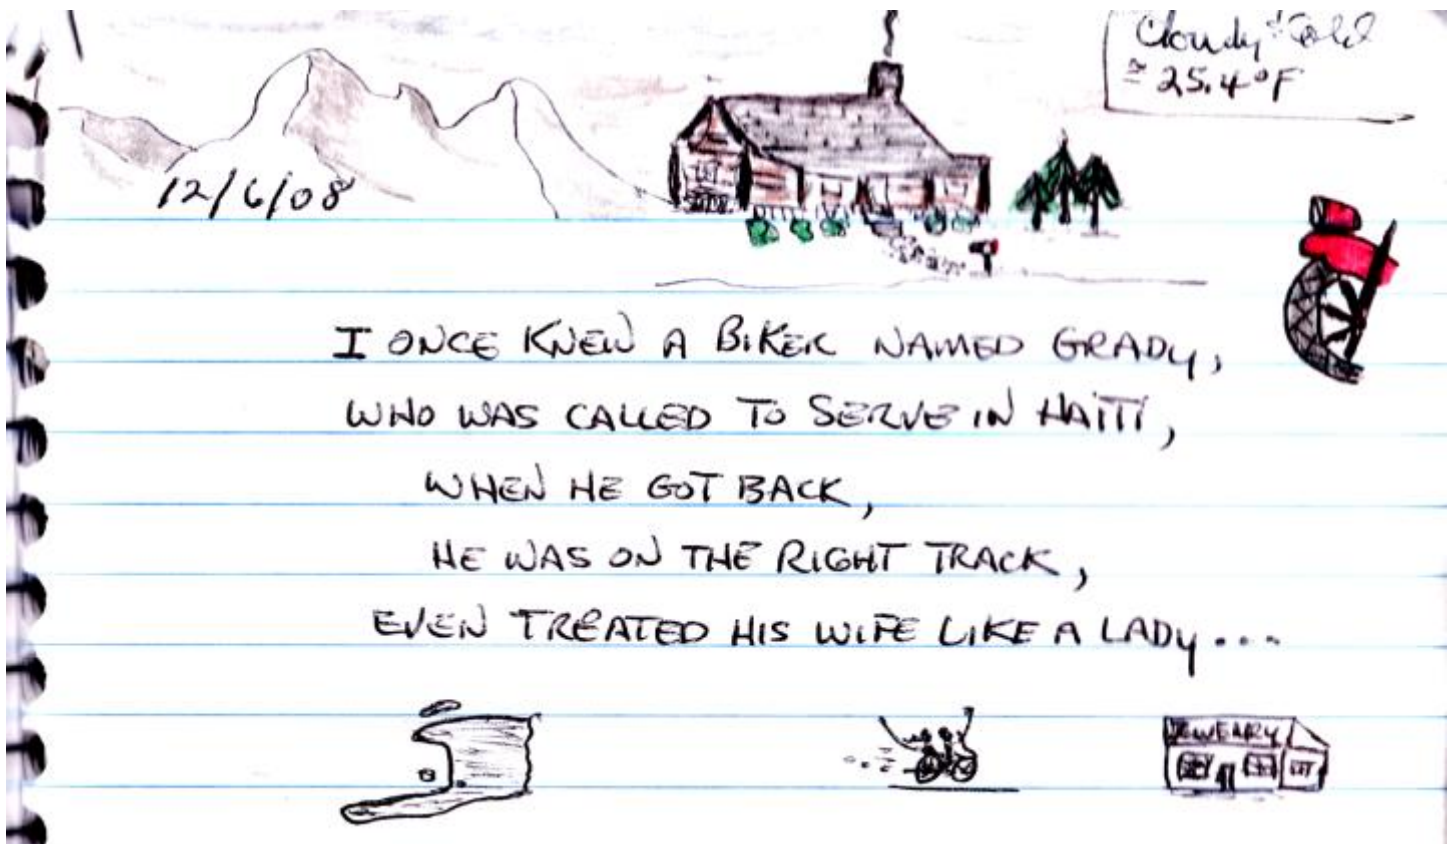 Cloudy & Cold
≅ 25.4°F
12/6/08
I ONCE KNEW A BIKER NAMED GRADY,
WHO WAS CALLED TO SERVE IN HAITI,
WHEN HE GOT BACK,
HE WAS ON THE RIGHT TRACK,
EVEN TREATED HIS WIFE LIKE A LADY...
JEWELRY